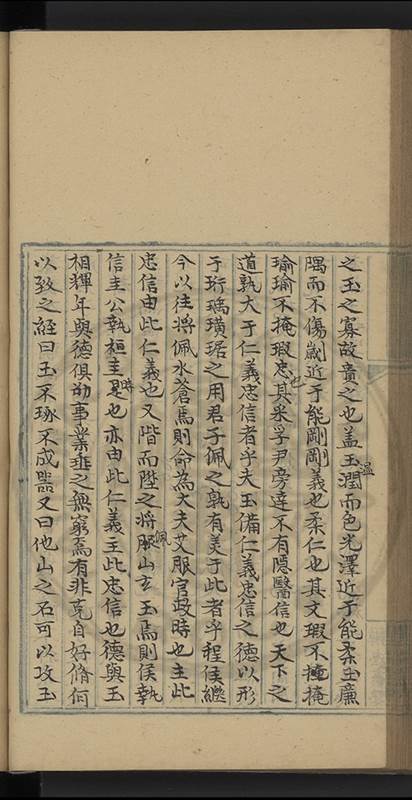 之玉之寡故貴之也盖玉溫潤而色光澤近于能柔玉廉
隅而不傷劌近于能剛剛義也柔仁也其文瑕不掩掩
瑜瑜不掩瑕忠也其采孚尹旁達不有隱翳信也天下之
道孰大于仁義忠信者乎夫玉備仁義忠信之德以形
于珩瑀璜琚之用君子佩之孰有美于此者乎程侯繼
今以往將佩水蒼焉則命為大夫艾服官政時也主此
忠信由此仁義也又階而陞之將服佩山玄玉焉則侯執
信圭公執桓圭是時也亦由此仁義主此忠信也德與玉
相輝年與德俱劭事業韭之無窮焉有非克自好脩何
以致之經曰玉不琢不成器又曰他山之石可以攻玉